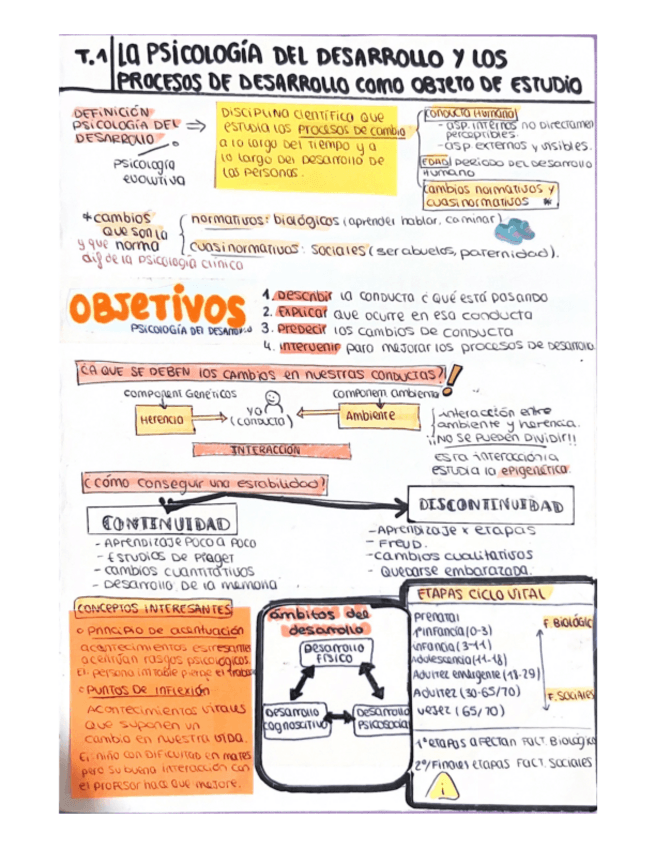 T.1 LA PSICOLOGÍA DEL DESARROLLO Y LOS
PROCESOS DE DESARROLLO COMO OBJETO DE ESTUDIO
DEFINICIÓN
PSICOLOGÍA DEL
DESARROLLO
psicología
evolutiva
DISCIPLINA CIENTÍFICA QUE
ESTUDIA LOS PROCESOS DE CAMBIO
A LO LARGO DEL TIEMPO Y A
LO LARGO DEL DESARROLLO DE
LAS PERSONAS.
CONDUCTA HUMANA
- asp. internos no directamen
perceptibles.
- asp externos y visibles.
EDAD/PERÍODO DEL DESARROLLO
HUMANO
Cambios normativos y
cuasinormativos *
*cambios
que son la
y que norma
dif de la psicología clínica
normativos: biológicos (aprender hablar, caminar)
cuasinormativos: sociales (ser abuelos, paternidad).
OBJETIVOS
PSICOLOGÍA DEL DESARROLLO
1. Describir la conducta ¿qué está pasando
2. Explicar que ocurre en esa conducta
3. Predecir los cambios de conducta
4. Intervenir para mejorar los procesos de desarrollo.
¿A QUE SE DEBEN LOS CAMBIOS EN NUESTRAS CONDUCTAS?!
component Genéticos
Herencia
YO
(CONDUCTA)
component ambiental
Ambiente
INTERACCIÓN
interacción entre
ambiente y herencia.
¡¡NO SE PUEDEN DIVIDIR!!
esta interacción la
estudia la epigenética.
¿Cómo conseguir una estabilidad?
CONTINUIDAD
- APRENDIZAJE POCO A POCO
- ESTUDIOS DE Piaget
- Cambios cuantitativos
- Desarrollo de la memoria
DISCONTINUIDAD
- Aprendizaje x etapas
- FREUD.
- Cambios cualitativos
- Quedarse embarazada.
CONCEPTOS INTERESANTES
Principio de acentuación
acontecimientos estresantes
acentúan rasgos psicológicos.
Ej. persona irritable pierde el trabajo
PUNTOS DE INFLEXIÓN
Acontecimientos vitales
que suponen un
cambio en nuestra vida.
Ej niño con dificultad en mates
pero su buena interacción con
el profesor hace que mejore.
ámbitos del
desarrollo
Desarrollo
Físico
Desarrollo
cognoscitivo
Desarrollo
psicosocial
ETAPAS CICLO VITAL
Prenatal
1ªinfancia (0-3)
infancia (3-11)
Adolescencia (11-18)
Adultez emergente (18-29)
Adultez (30-65/70)
vejez (65/70)
F. BIOLÓGICO
F. SOCIALES
1ª etapas afectan fact. Biológico
2º/Finales etapas fact. Sociales